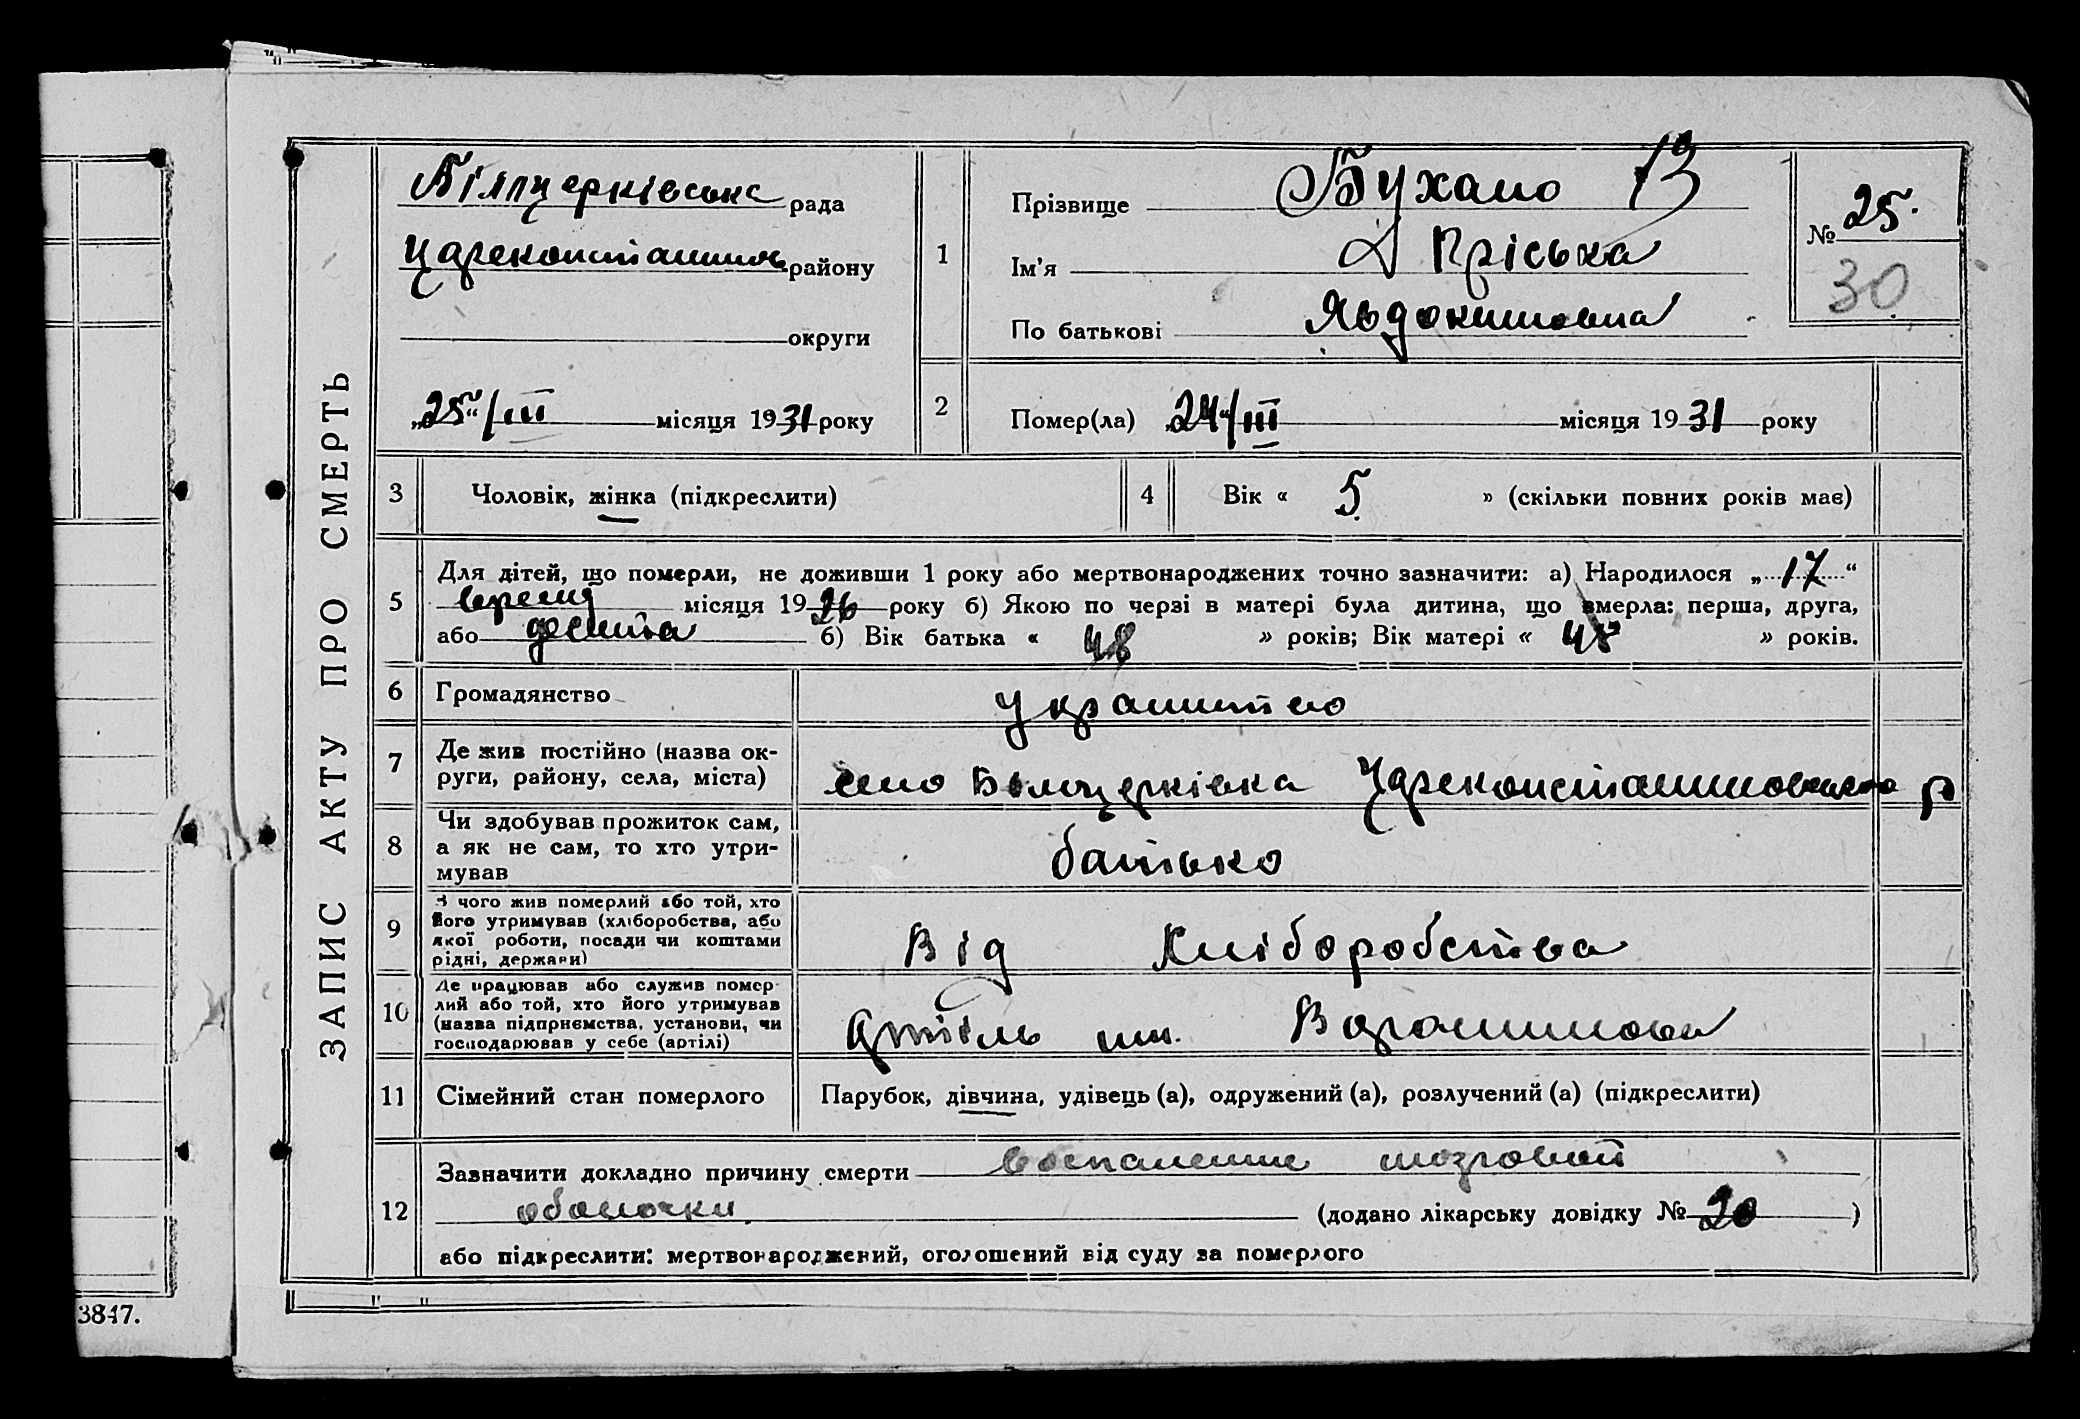 ЗАПИС АКТУ ПРО СМЕРТЬ
Білпцерківська рада
Цареконстантинов району
округи
„25“/III місяця 1931 року
1
Прізвище Бухало 13
Ім’я Пріська
По батькові Явдокимовна
№ 25.
30
2 Помер(ла) „24“/III місяця 1931 року
3 Чоловік, жінка (підкреслити)
4 Вік « 5 » (скільки повних років має)
5 Для дітей, що померли, не доживши 1 року або мертвонароджених точно зазначити: а) Народилося „17“
місяця 1926 року б) Якою по черзі в матері була дитина, що вмерла: перша, друга,
або десята б) Вік батька « 48 » років; Вік матері « 45 » років.
6 Громадянство
7 Де жив постійно (назва ок-
руги, району, села, міста)
село Білоцерківка Цареконстантиновського р
8 Чи здобував прожиток сам,
а як не сам, то хто утри-
мував
батько
9 З чого жив померлий або той, хто
його утримував (хліборобства, або
якої роботи, посади чи коштами
рідні, держави)
Від Хліборобства
10 Де працював або служив помер-
лий або той, хто його утримував
(назва підприємства, установи, чи
господарював у себе (артілі)
Артіль им. Ворошилова
11 Сімейний стан померлого Парубок, дівчина, удівець (а), одружений (а), розлучений (а) (підкреслити)
12
Зазначити докладно причину смерти воспаление мозговой
оболочки (додано лікарську довідку № 20 )
або підкреслити: мертвонароджений, оголошений від суду за померлого
3847.